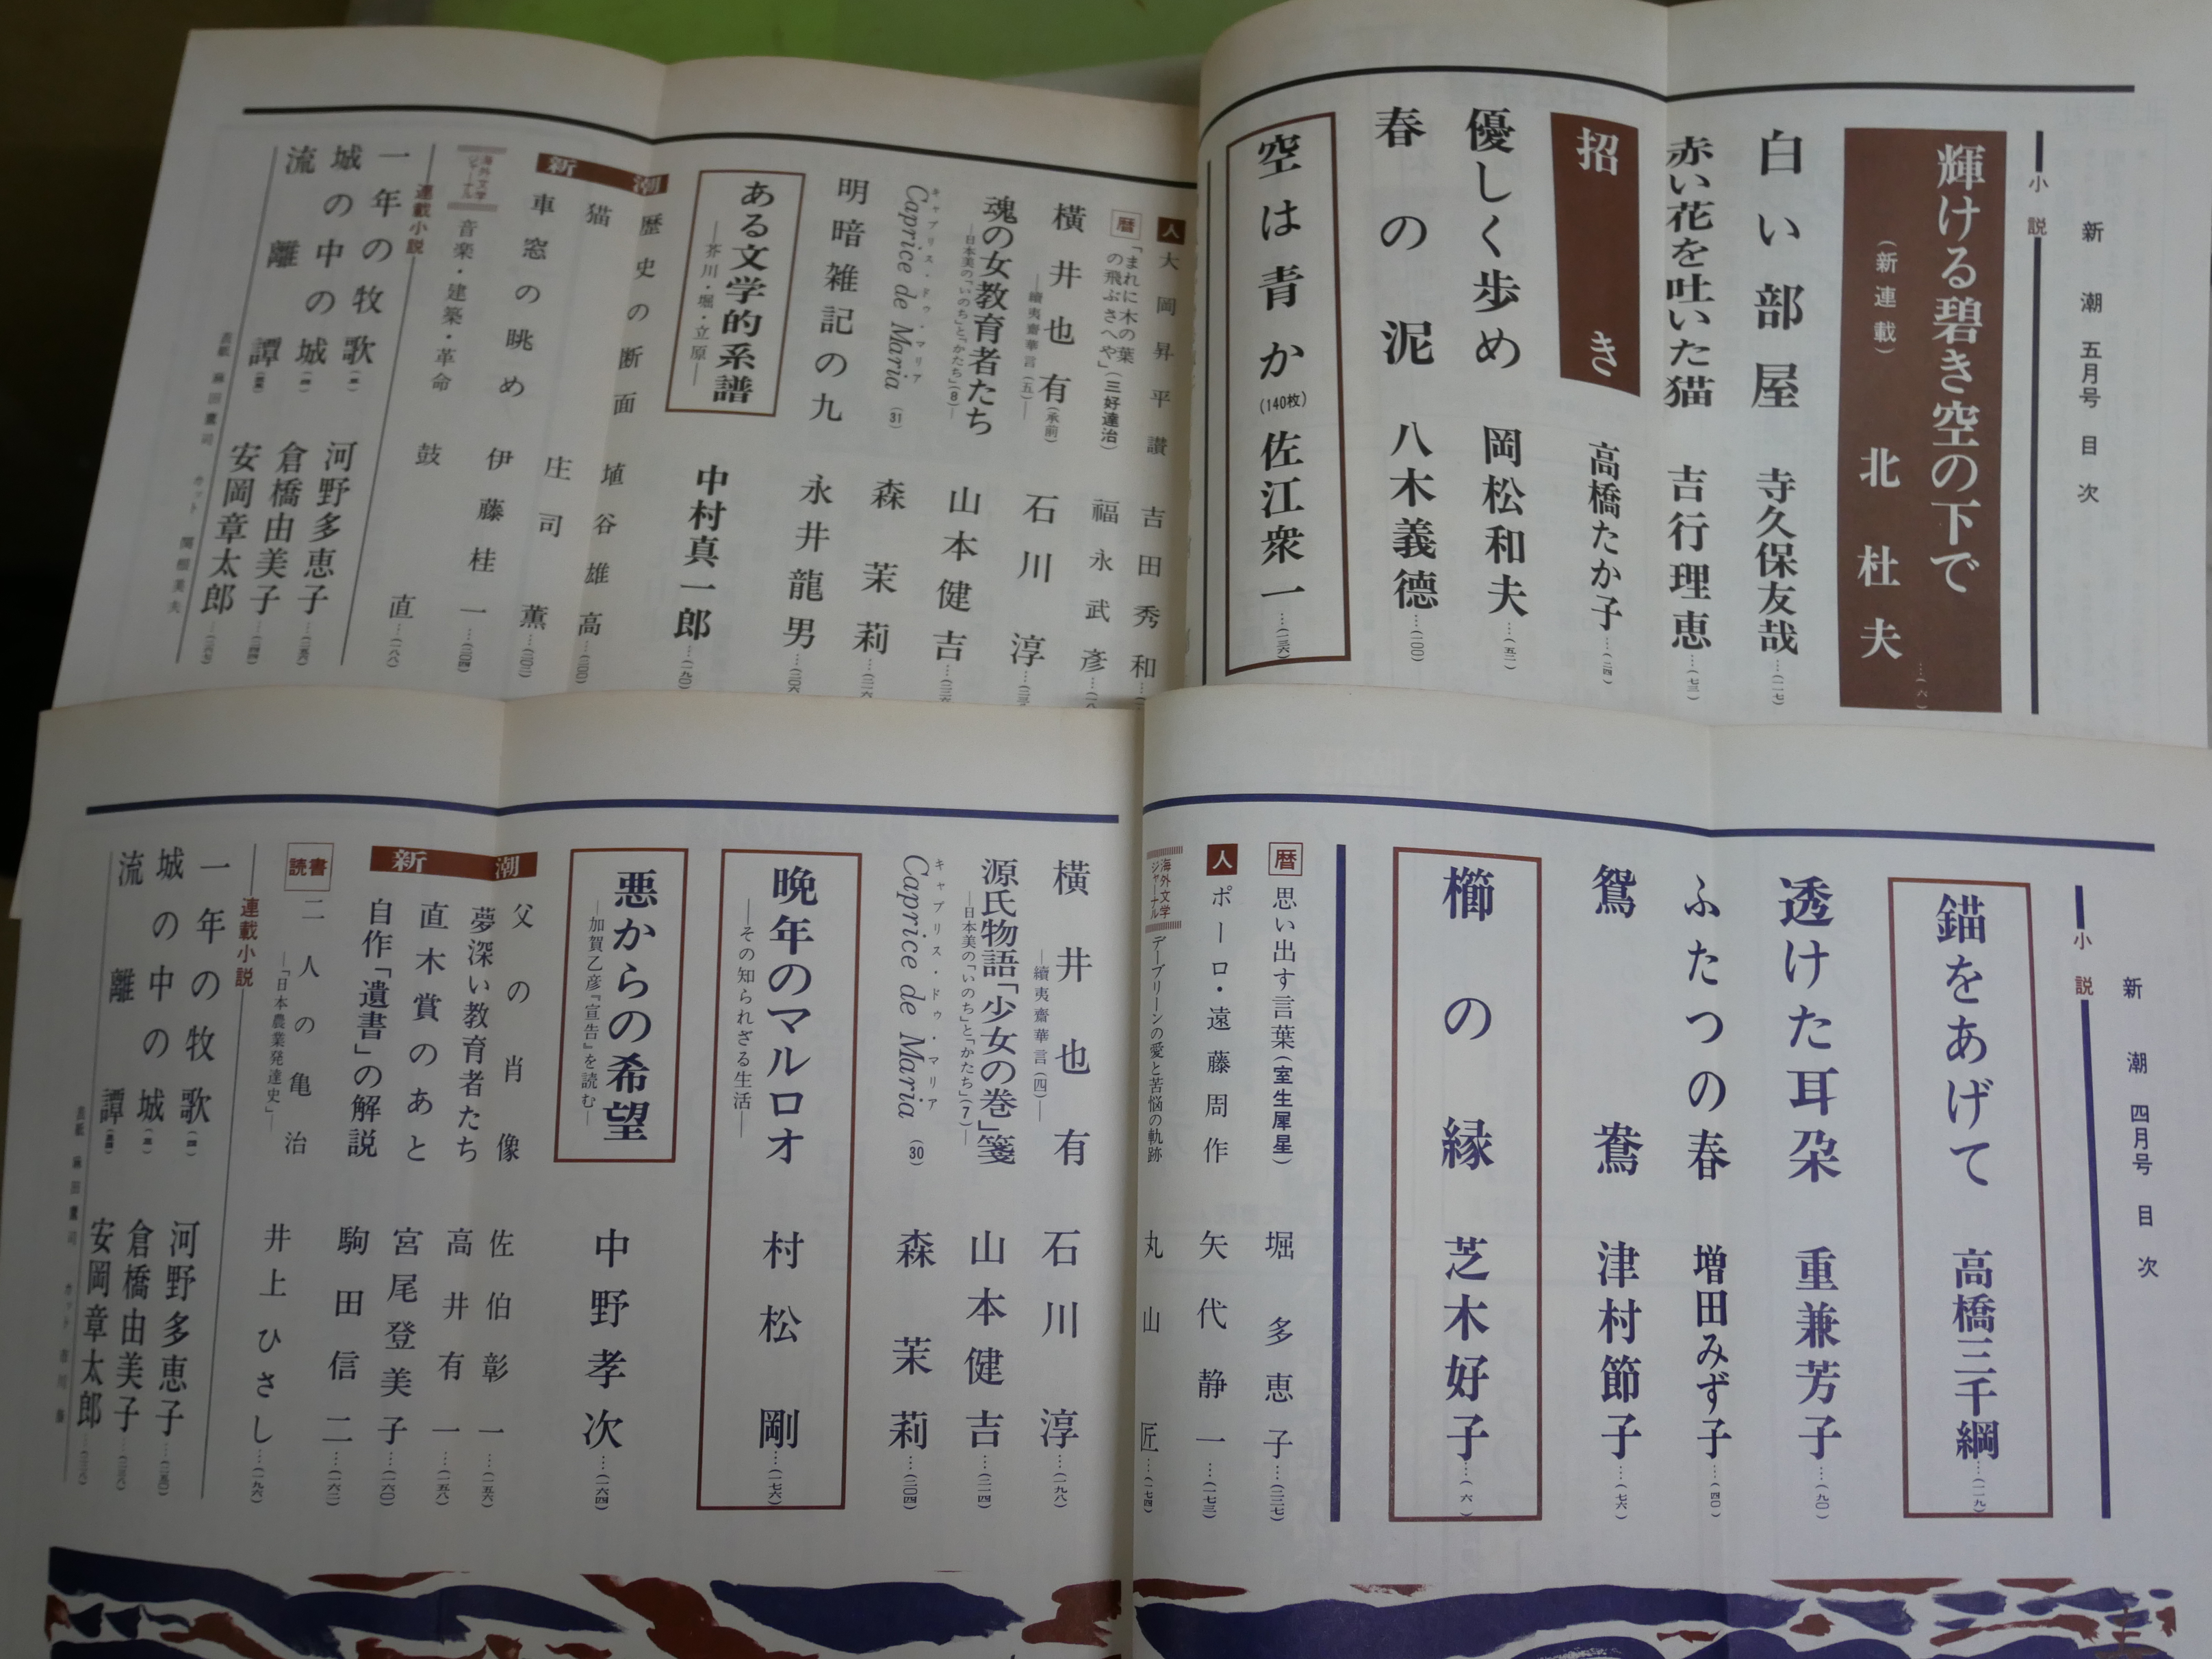 新潮 五月号 目次
小説
輝ける碧き空の下で
(新連載) 北杜夫…(六)
白い部屋 寺久保友哉…(一一七)
赤い花を吐いた猫 吉行理恵…(七三)
招き 高橋たか子…(二四)
優しく歩め 岡松和夫…(五二)
春の泥 八木義德…(一〇〇)
空は青か(140枚) 佐江衆一…(一三六)
人 大岡昇平讃 吉田秀和
暦 「まれに木の葉の飛ぶさへや」(三好達治) 福永武彦
横井也有(承前) 石川淳
―續夷齋華言(五)―
魂の女教育者たち 山本健吉
―日本美の「いのち」と「かたち」(8)―
キャプリス・ドゥ・マリア
Caprice de Maria (31) 森茉莉
明暗雑記の九 永井龍男
ある文学的系譜 中村真一郎…(一九〇)
―芥川・堀・立原―
新潮
歴史の断面 埴谷雄高…(二〇〇)
猫 庄司薫…(二〇二)
車窓の眺め 伊藤桂一…(二〇四)
海外文学ジャーナル 音楽・建築・革命 鼓直…(一八八)
連載小説
一年の牧歌 河野多恵子
城の中の城 倉橋由美子
流離譚 安岡章太郎
表紙 麻田鷹司 カット 関根美夫
新潮 四月号 目次
小説
錨をあげて 高橋三千綱…(一一九)
透けた耳朶 重兼芳子…(九〇)
ふたつの春 増田みず子…(四〇)
鴛鴦 津村節子…(七六)
櫛の縁 芝木好子…(六)
暦 思い出す言葉(室生犀星) 堀多恵子…(二三七)
人 ポーロ・遠藤周作 矢代静一…(一七三)
海外文学ジャーナル デーブリーンの愛と苦悩の軌跡 丸山匠…(一七四)
横井也有 石川淳…(一九八)
―續夷齋華言(四)―
源氏物語「少女の巻」箋 山本健吉…(二一四)
―日本美の「いのち」と「かたち」(7)―
キャプリス・ドゥ・マリア
Caprice de Maria (30) 森茉莉…(二〇四)
晩年のマルロオ 村松剛…(一七六)
―その知られざる生活―
悪からの希望 中野孝次…(一六四)
―加賀乙彦『宣告』を読む―
新潮
父の肖像 佐伯彰一…(一五六)
夢深い教育者たち 高井有一…(一五八)
直木賞のあと 宮尾登美子…(一六〇)
自作「遺書」の解説 駒田信二…(一六二)
読書 二人の亀治 井上ひさし…(一九六)
―「日本農業発達史」―
連載小説
一年の牧歌(四) 河野多恵子
城の中の城(三) 倉橋由美子
流離譚 安岡章太郎
表紙 麻田鷹司 カット